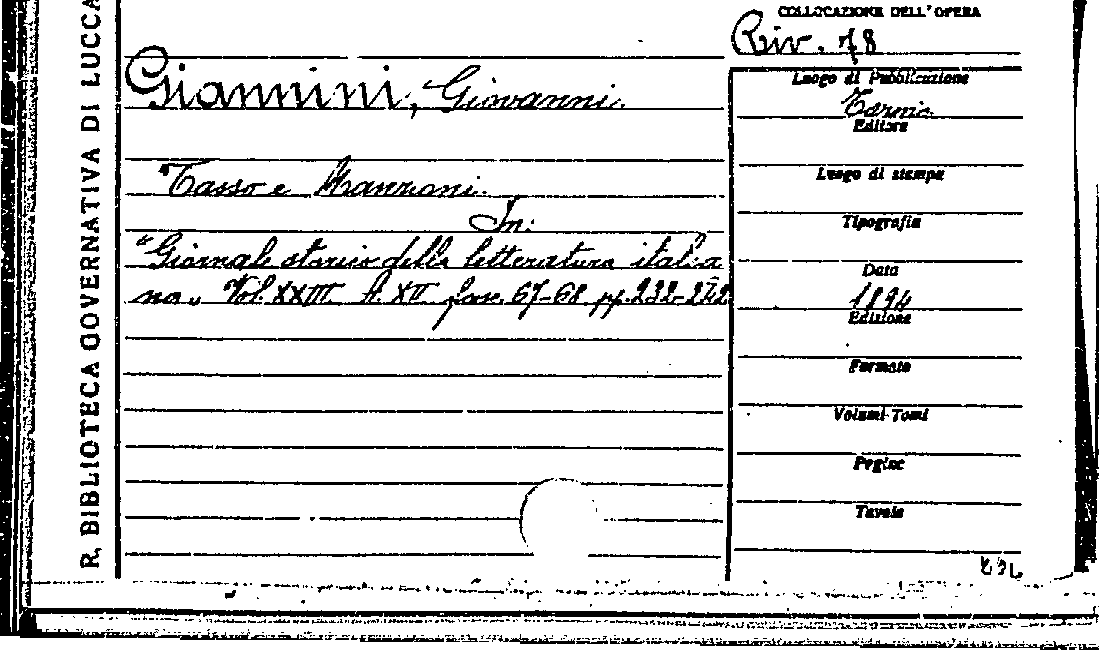 R. BIBLIOTECA GOVERNATIVA DI LUCCA
COLLOCAZIONE DELL'OPERA
Riv. 78
Giannini, Giovanni.
Tasso e Manzoni.
In:
"Giornale storico della letteratura italia
na„ Vol. XXIII A. XII fasc. 67-68 pp. 232-242
Luogo di Pubblicazione
Torino
Editore
Luogo di stampa
Tipografia
Data
1894
Edizione
Formato
Volumi-Tomi
Pagine
Tavole